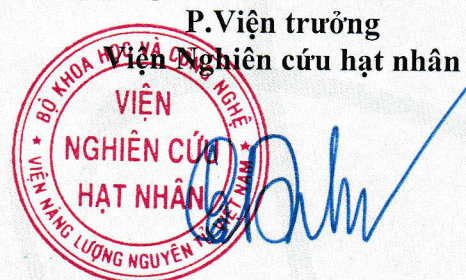 P.Viện trưởng
Viện Nghiên cứu hạt nhân
BỘ KHOA HỌC VÀ CÔNG NGHỆ
VIỆN
NGHIÊN CỨU
HẠT NHÂN
VIỆN NĂNG LƯỢNG NGUYÊN TỬ VIỆT NAM